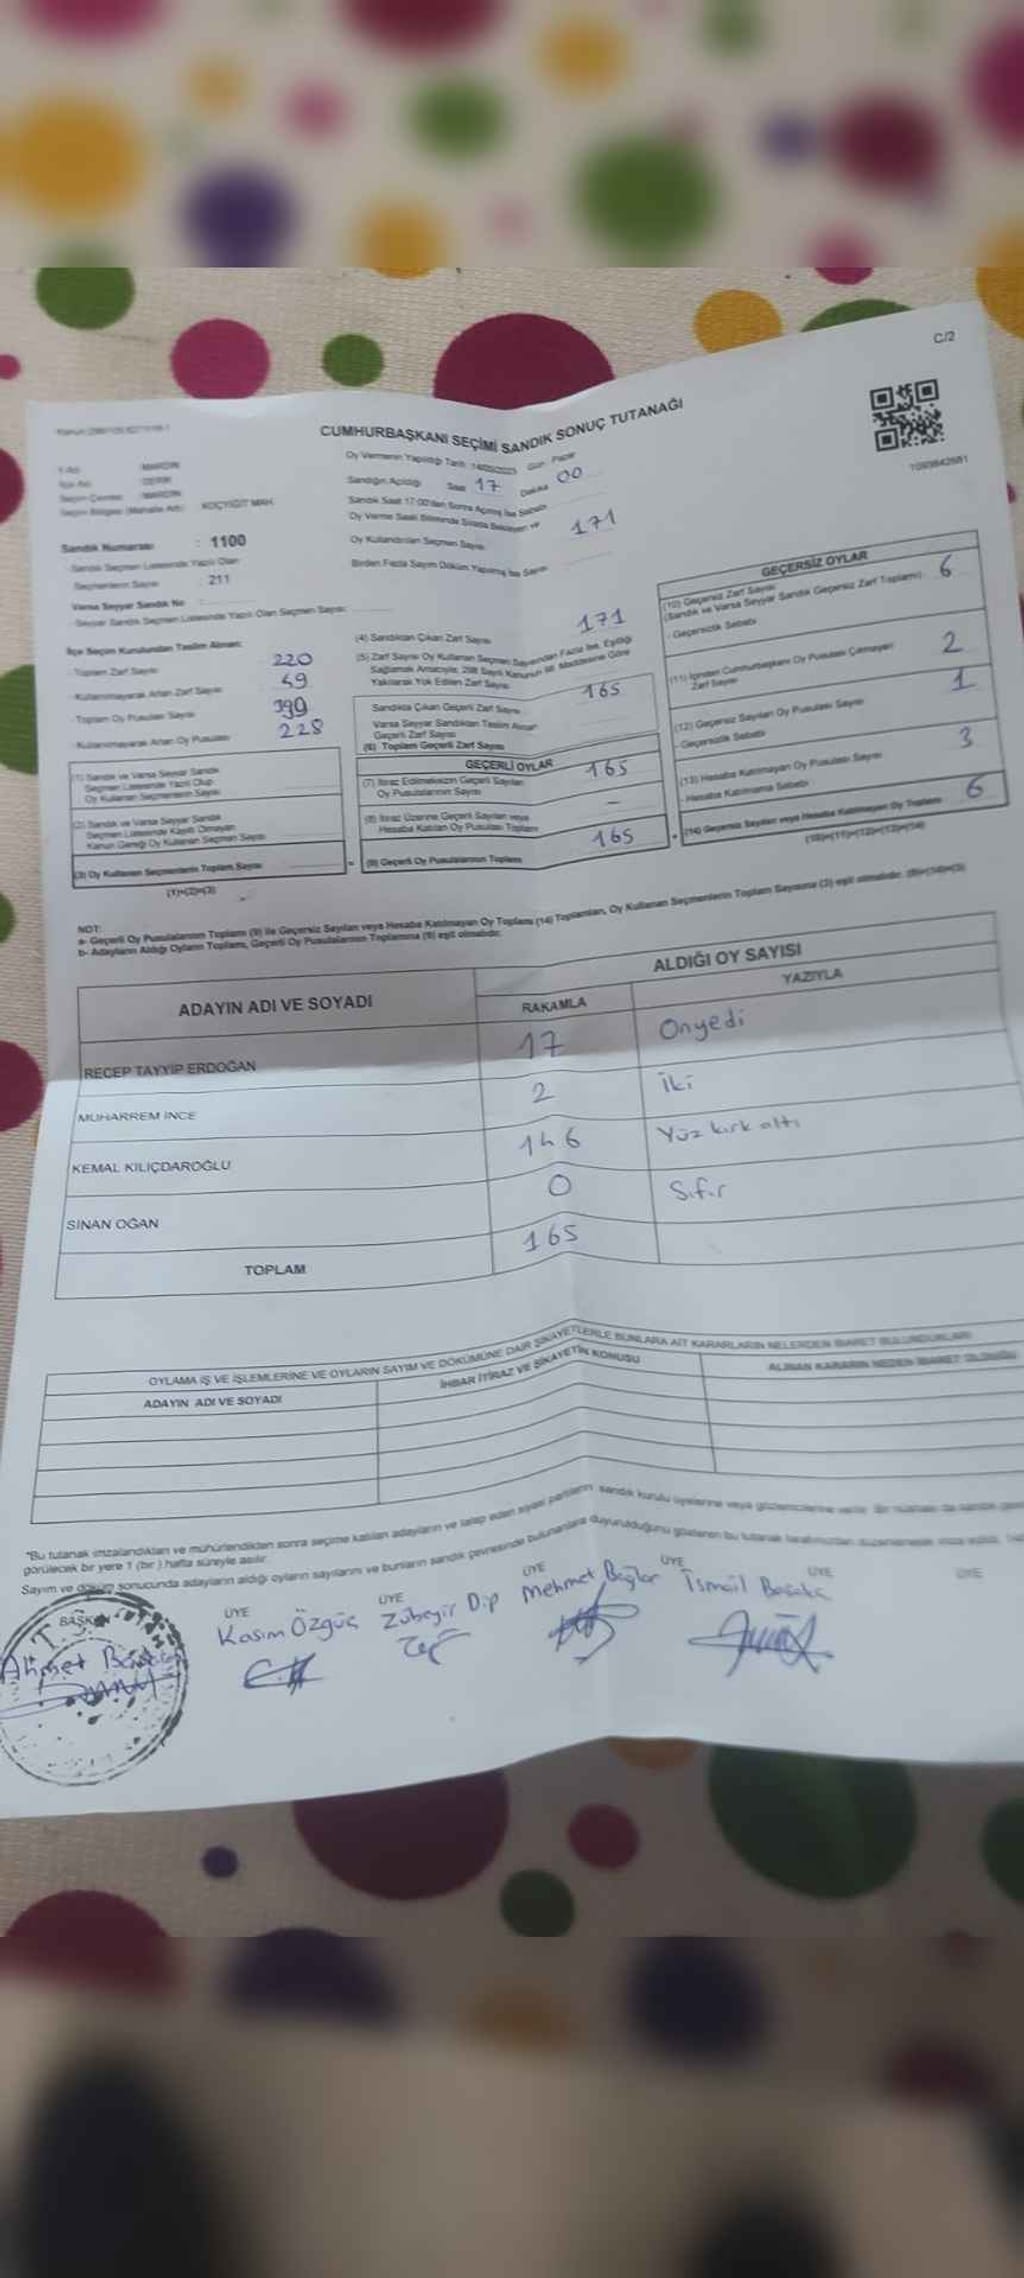 C/2
CUMHURBAŞKANI SEÇİMİ SANDIK SONUÇ TUTANAĞI
Oy Vermenin Yapıldığı Tarih: 14/05/2023 Gün: Pazar
Sandığın Açıldığı Saat 17 Dakika 00
Sandık Saat 17:00'dan Sonra Açılmış İse Sebebi
Oy Verme Saati Bitiminde Sırada Bekleyen ve
Oy Kullandırılan Seçmen Sayısı 171
Birden Fazla Sayım Döküm Yapılmış İse Sayısı
İli Adı MARDİN
İlçe Adı DERİK
Seçim Çevresi MARDİN
Seçim Bölgesi (Mahalle Adı) KOÇYİĞİT MAH.
Sandık Numarası : 1100
Sandık Seçmen Listesinde Yazılı Olan
Seçmenlerin Sayısı : 211
Varsa Seyyar Sandık No :
Seyyar Sandık Seçmen Listesinde Yazılı Olan Seçmen Sayısı:
İlçe Seçim Kurulundan Teslim Alınan:
- Toplam Zarf Sayısı 220
- Kullanılmayarak Artan Zarf Sayısı 49
- Toplam Oy Pusulası Sayısı 399
- Kullanılmayarak Artan Oy Pusulası 228
(1) Sandık ve Varsa Seyyar Sandık
Seçmen Listesinde Yazılı Olup
Oy Kullanan Seçmenlerin Sayısı
(2) Sandık ve Varsa Seyyar Sandık
Seçmen Listesinde Kayıtlı Olmayan
Kanun Gereği Oy Kullanan Seçmen Sayısı
(3) Oy Kullanan Seçmenlerin Toplam Sayısı
(1)+(2)=(3)
(4) Sandıktan Çıkan Zarf Sayısı 171
(5) Zarf Sayısı Oy Kullanan Seçmen Sayısından Fazla İse, Eşitliği
Sağlamak Amacıyla, 298 Sayılı Kanunun 98. Maddesine Göre
Yakılarak Yok Edilen Zarf Sayısı
Sandıkta Çıkan Geçerli Zarf Sayısı 165
Varsa Seyyar Sandıktan Teslim Alınan
Geçerli Zarf Sayısı
(6) Toplam Geçerli Zarf Sayısı
GEÇERLİ OYLAR
(7) İtiraz Edilmeksizin Geçerli Sayılan
Oy Pusulalarının Sayısı 165
(8) İtiraz Üzerine Geçerli Sayılan veya
Hesaba Katılan Oy Pusulası Toplamı -
(9) Geçerli Oy Pusulalarının Toplamı 165
GEÇERSİZ OYLAR
(10) Geçersiz Zarf Sayısı
(Sandık ve Varsa Seyyar Sandık Geçersiz Zarf Toplamı) 6
- Geçersizlik Sebebi
(11) İçinden Cumhurbaşkanı Oy Pusulası Çıkmayan
Zarf Sayısı 2
(12) Geçersiz Sayılan Oy Pusulası Sayısı 1
- Geçersizlik Sebebi
(13) Hesaba Katılmayan Oy Pusulası Sayısı 3
- Hesaba Katılmama Sebebi
(14) Geçersiz Sayılan veya Hesaba Katılmayan Oy Toplamı 6
(10)+(11)+(12)+(13)=(14)
NOT:
a- Geçerli Oy Pusulalarının Toplamı (9) ile Geçersiz Sayılan veya Hesaba Katılmayan Oy Toplamı (14) Toplamları, Oy Kullanan Seçmenlerin Toplam Sayısına (3) eşit olmalıdır. (9)+(14)=(3)
b- Adayların Aldığı Oyların Toplamı, Geçerli Oy Pusulalarının Toplamına (9) eşit olmalıdır.
ADAYIN ADI VE SOYADI
ALDIĞI OY SAYISI
RAKAMLA YAZIYLA
RECEP TAYYİP ERDOĞAN 17 Onyedi
MUHARREM İNCE 2 İki
KEMAL KILIÇDAROĞLU 146 Yüz kırk altı
SİNAN OĞAN 0 Sıfır
TOPLAM 165
OYLAMA İŞ VE İŞLEMLERİNE VE OYLARIN SAYIM VE DÖKÜMÜNE DAİR ŞİKAYETLERLE BUNLARA AİT KARARLARIN NELERDEN İBARET BULUNDUKLARI
ADAYIN ADI VE SOYADI İHBAR İTİRAZ VE ŞİKAYETİN KONUSU ALINAN KARARIN NEDEN İBARET OLDUĞU
*Bu tutanak imzalandıktan ve mühürlendikten sonra seçime katılan adayların ve talep eden siyasi partilerin sandık kurulu üyelerine veya gözlemcilerine verilir. Bir nüshası da sandık
görülecek bir yere 1 (bir) hafta süreyle asılır.
Sayım ve döküm sonucunda adayların aldığı oyların sayılarını ve bunların sandık çevresinde bulunanlara duyurulduğunu gösteren bu tutanak tarafımızdan düzenlenerek imza edildi.
BAŞKAN ÜYE ÜYE ÜYE ÜYE ÜYE ÜYE
Ahmet Kasım Özgüç Zübeyir Dip Mehmet Bağlar İsmail